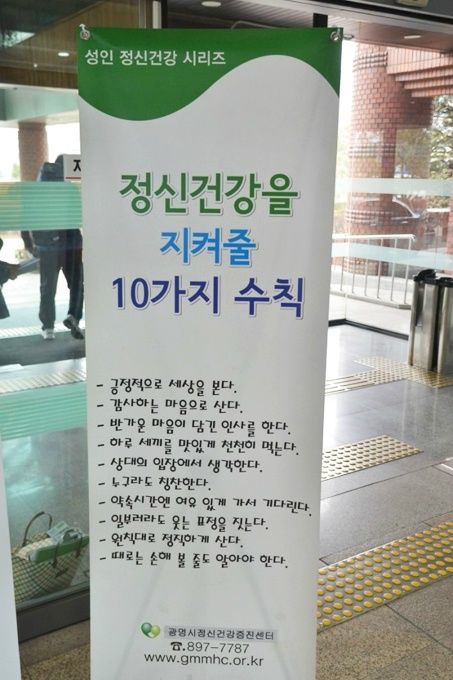 성인 정신건강 시리즈
정신건강을
지켜줄
10가지 수칙
- 긍정적으로 세상을 본다.
- 감사하는 마음으로 산다.
- 반가운 마음이 담긴 인사를 한다.
- 하루 세끼를 맛있게 천천히 먹는다.
- 상대의 입장에서 생각한다.
- 누구라도 칭찬한다.
- 약속시간엔 여유 있게 가서 기다린다.
- 일부러라도 웃는 표정을 짓는다.
- 원칙대로 정직하게 산다.
- 때로는 손해 볼 줄도 알아야 한다.
광명시정신건강증진센터
☎.897-7787
www.gmmhc.or.kr